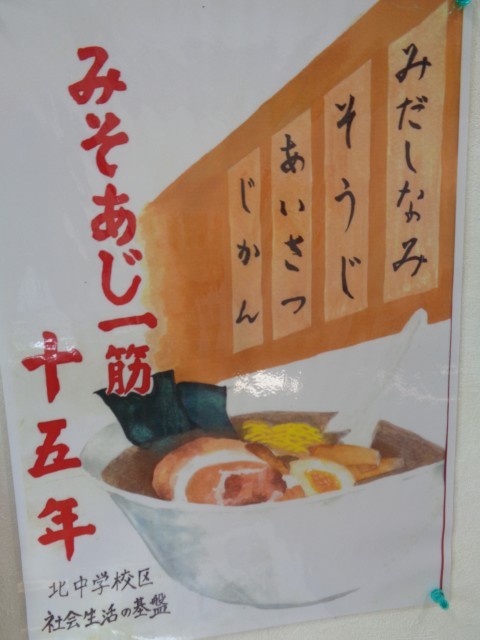 みだしなみ
そうじ
あいさつ
じかん
みそあじ一筋
十五年
北中学校区
社会生活の基盤